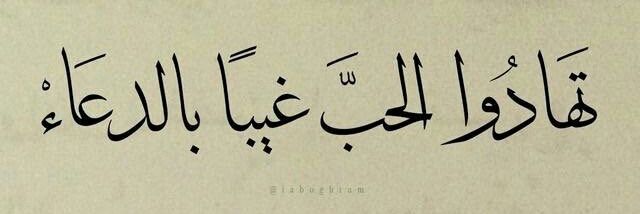 تَهَادُوا الحبَّ غيبًا بالدعَاءْ
@iaboghiam